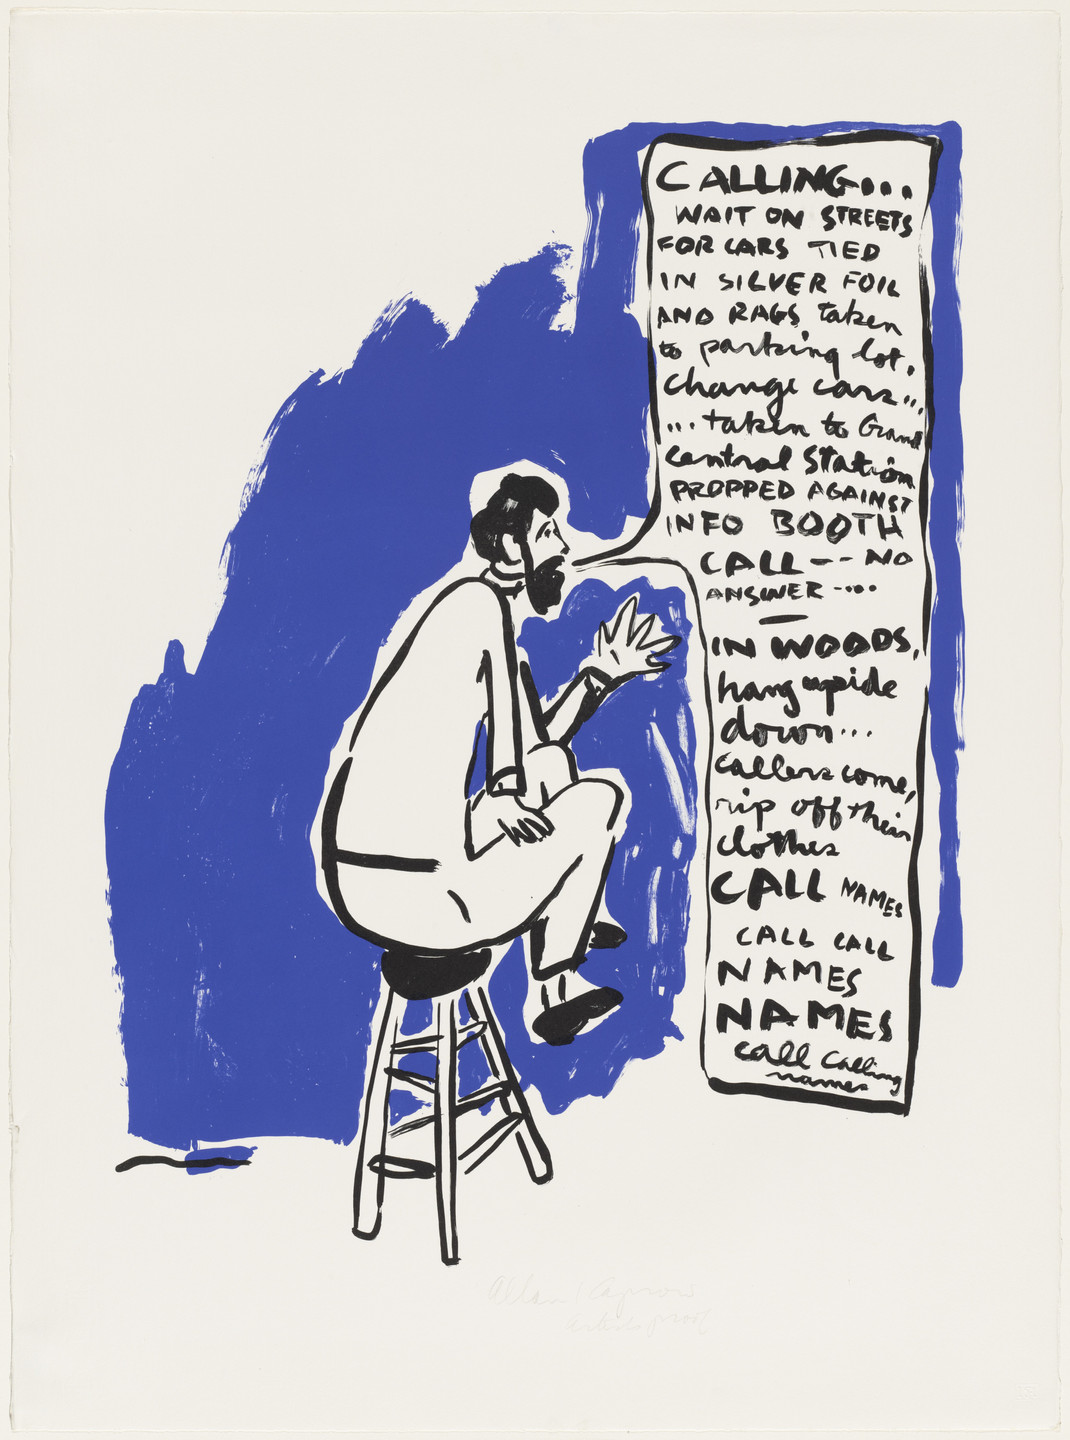 CALLING...
WAIT ON STREETS
FOR CARS TIED
IN SILVER FOIL
AND RAGS taken
to parking lot,
change cars...
... taken to Grand
Central Station
PROPPED AGAINST
INFO BOOTH
CALL -- NO
ANSWER -...
—
IN WOODS,
hang upside
down...
callers come,
rip off their
clothes
CALL NAMES
CALL CALL
NAMES
NAMES
call calling
names
Allan Kaprow
artists proof